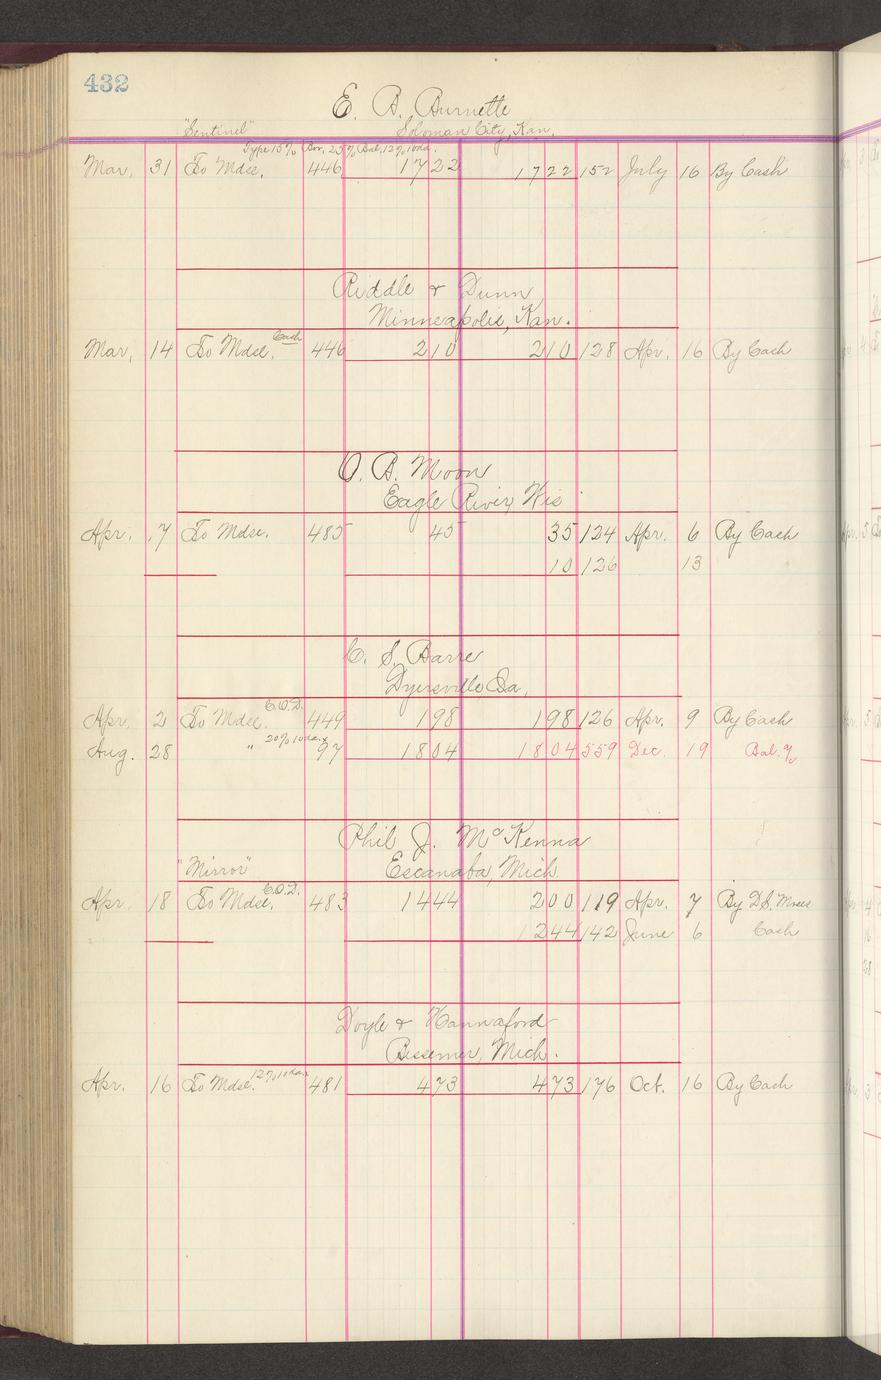 432
E. B. Burnette
"Sentinel" Soloman City, Kan.
Type 15% Bor. 25% Bal. 12% 10 da.
Mar. 31 To Mdse. 446 1722 1722 152 July 16 By Cash
Riddle & Dunn
Minneapolis, Kan.
Mar. 14 To Mdse. Cash 446 210 210 128 Apr. 16 By Cash
O. B. Moon
Eagle River, Wis
Apr. 7 To Mdse. 485 45 35 124 Apr. 6 By Cash
10 126 13
C. S. Barre
Dyersville, Ia.
Apr. 2 To Mdse. C.O.D. 449 198 198 126 Apr. 9 By Cash
Aug. 28 " 20% 10 da. x 97 1804 1804 559 Dec. 19 Bal. %
Phil J. McKenna
"Mirror" Escanaba, Mich.
Apr. 18 To Mdse. C.O.D. 483 1444 200 119 Apr. 7 By D.S.
1244 142 June 6 Cash
Doyle & Hannaford
Bessemer, Mich.
Apr. 16 To Mdse. 12% 10 da. 481 473 473 176 Oct. 16 By Cash